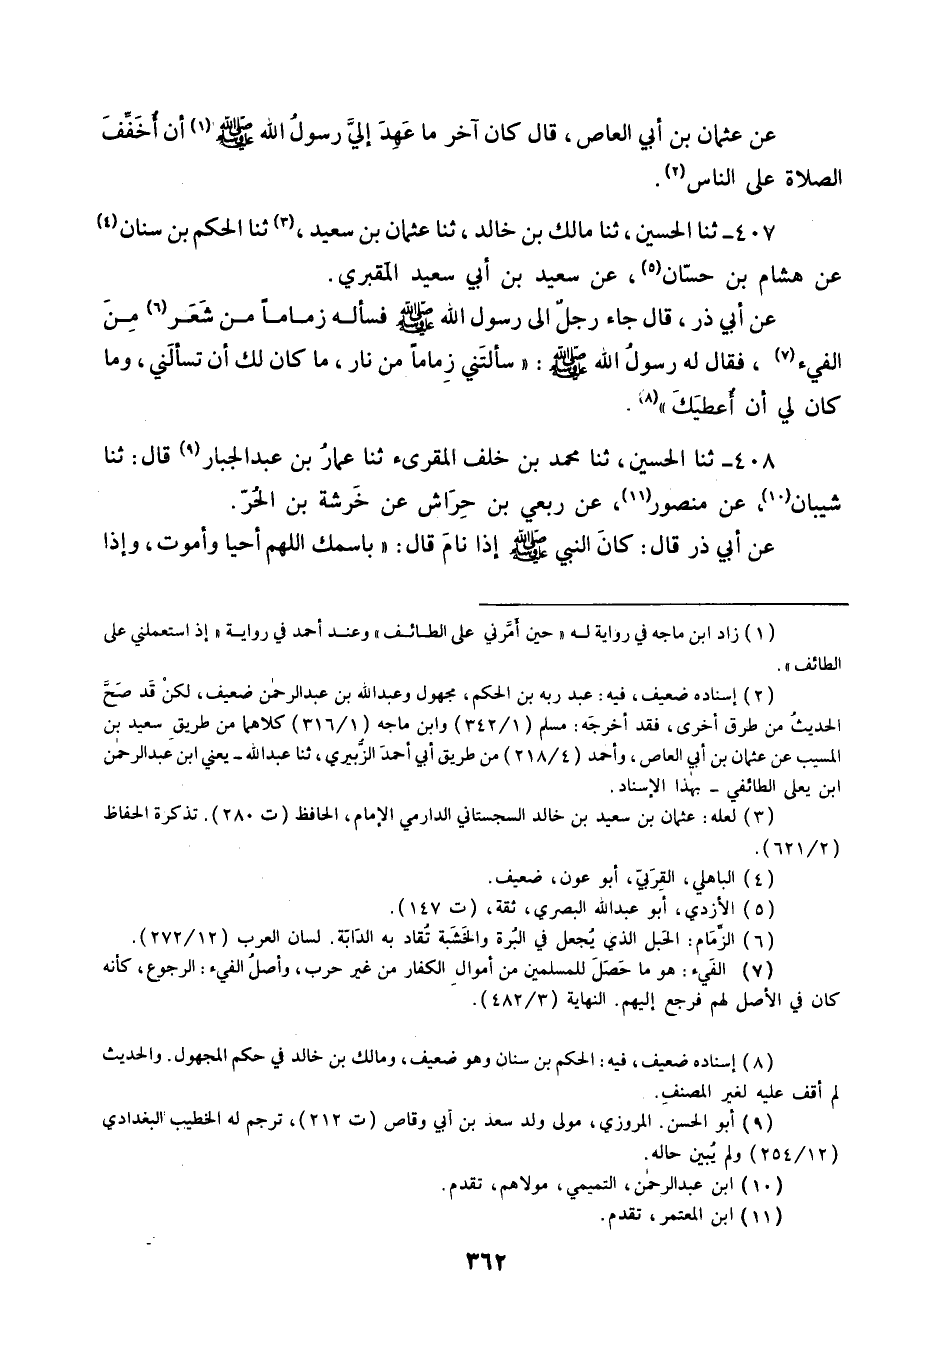 عن عثمان بن أبي العاص ، قال كان آخر ما عَهِدَ إليَّ رسولُ الله ﷺ (١) أن أُخَفِّفَ
الصلاة على الناس(٢) .
٤٠٧ـ ثنا الحسين ، ثنا مالك بن خالد ، ثنا عثمان بن سعيد ،(٣) ثنا الحكم بن سنان(٤)
عن هشام بن حسّان(٥) ، عن سعيد بن أبي سعيد المقبري .
عن أبي ذر ، قال جاء رجلٌ الى رسول الله ﷺ فسأله زماماً من شَعَر(٦) مِنَ
الفيء(٧) ، فقال له رسولُ الله ﷺ : « سألتَني زِماماً من نار ، ما كان لك أن تسألَني ، وما
كان لي أن أُعطيَكَ »(٨) .
٤٠٨ـ ثنا الحسين ، ثنا محمد بن خلف المقرىء ثنا عمارُ بن عبدالجبار(٩) قال : ثنا
شيبان(١٠)، عن منصور(١١)، عن ربعي بن حِرَاش عن خَرشة بن الحُرّ.
عن أبي ذر قال : كانَ النبي ﷺ إذا نامَ قال : « باسمك اللهم أحيا وأموت ، وإذا
(١) زاد ابن ماجه في رواية له « حين أَمَّرني على الطائف » وعند أحمد في رواية « إذ استعملني على
الطائف » .
(٢) إسناده ضعيف ، فيه : عبد ربه بن الحكم ، مجهول وعبدالله بن عبدالرحمٰن ضعيف ، لكنْ قَد صَحَّ
الحديثُ من طرق أخرى ، فقد أخرجَه : مسلم (٣٤٢/١) وابن ماجه (٣١٦/١) كلاهما من طريقِ سعيد بن
المسيب عن عثمان بن أبي العاص ، وأحمد (٢١٨/٤) من طريق أبي أحمدَ الزُّبيري ، ثنا عبدالله ـ يعني ابن عبدالرحمٰن
ابن يعلى الطائفي ـ بهٰذا الإسناد .
(٣) لعله : عثمان بن سعيد بن خالد السجستاني الدارمي الإمام ، الحافظ (ت ٢٨٠) . تذكرة الحفاظ
(٦٢١/٢).
(٤) الباهلي ، القِرَبيّ ، أبو عون ، ضعيف .
(٥) الأزدي ، أبو عبدالله البصري ، ثقة ، (ت ١٤٧).
(٦) الزِّمَام : الحَبل الذي يُجعل في البُرة والخَشَبة تُقاد به الدَابّة . لسان العرب (٢٧٢/١٢).
(٧) الفَيء : هو ما حَصَلَ للمسلمين من أموالِ الكفار من غير حرب ، وأصلُ الفيء : الرجوع ، كأنه
كان في الأصل لهم فرجع إليهم . النهاية (٤٨٢/٣).
(٨) إسناده ضعيف ، فيه : الحكم بن سنان وهو ضعيف ، ومالك بن خالد في حكم المجهول . والحديث
لم أقف عليه لغير المصنف .
(٩) أبو الحسن . المروزي ، مولى ولد سعد بن أبي وقاص (ت ٢١٢) ، ترجم له الخطيب البغدادي
(٢٥٤/١٢) ولم يُبين حاله .
(١٠) ابن عبدالرحمٰن ، التميمي ، مولاهم ، تقدم .
(١١) ابن المعتمر ، تقدم .
٣٦٢